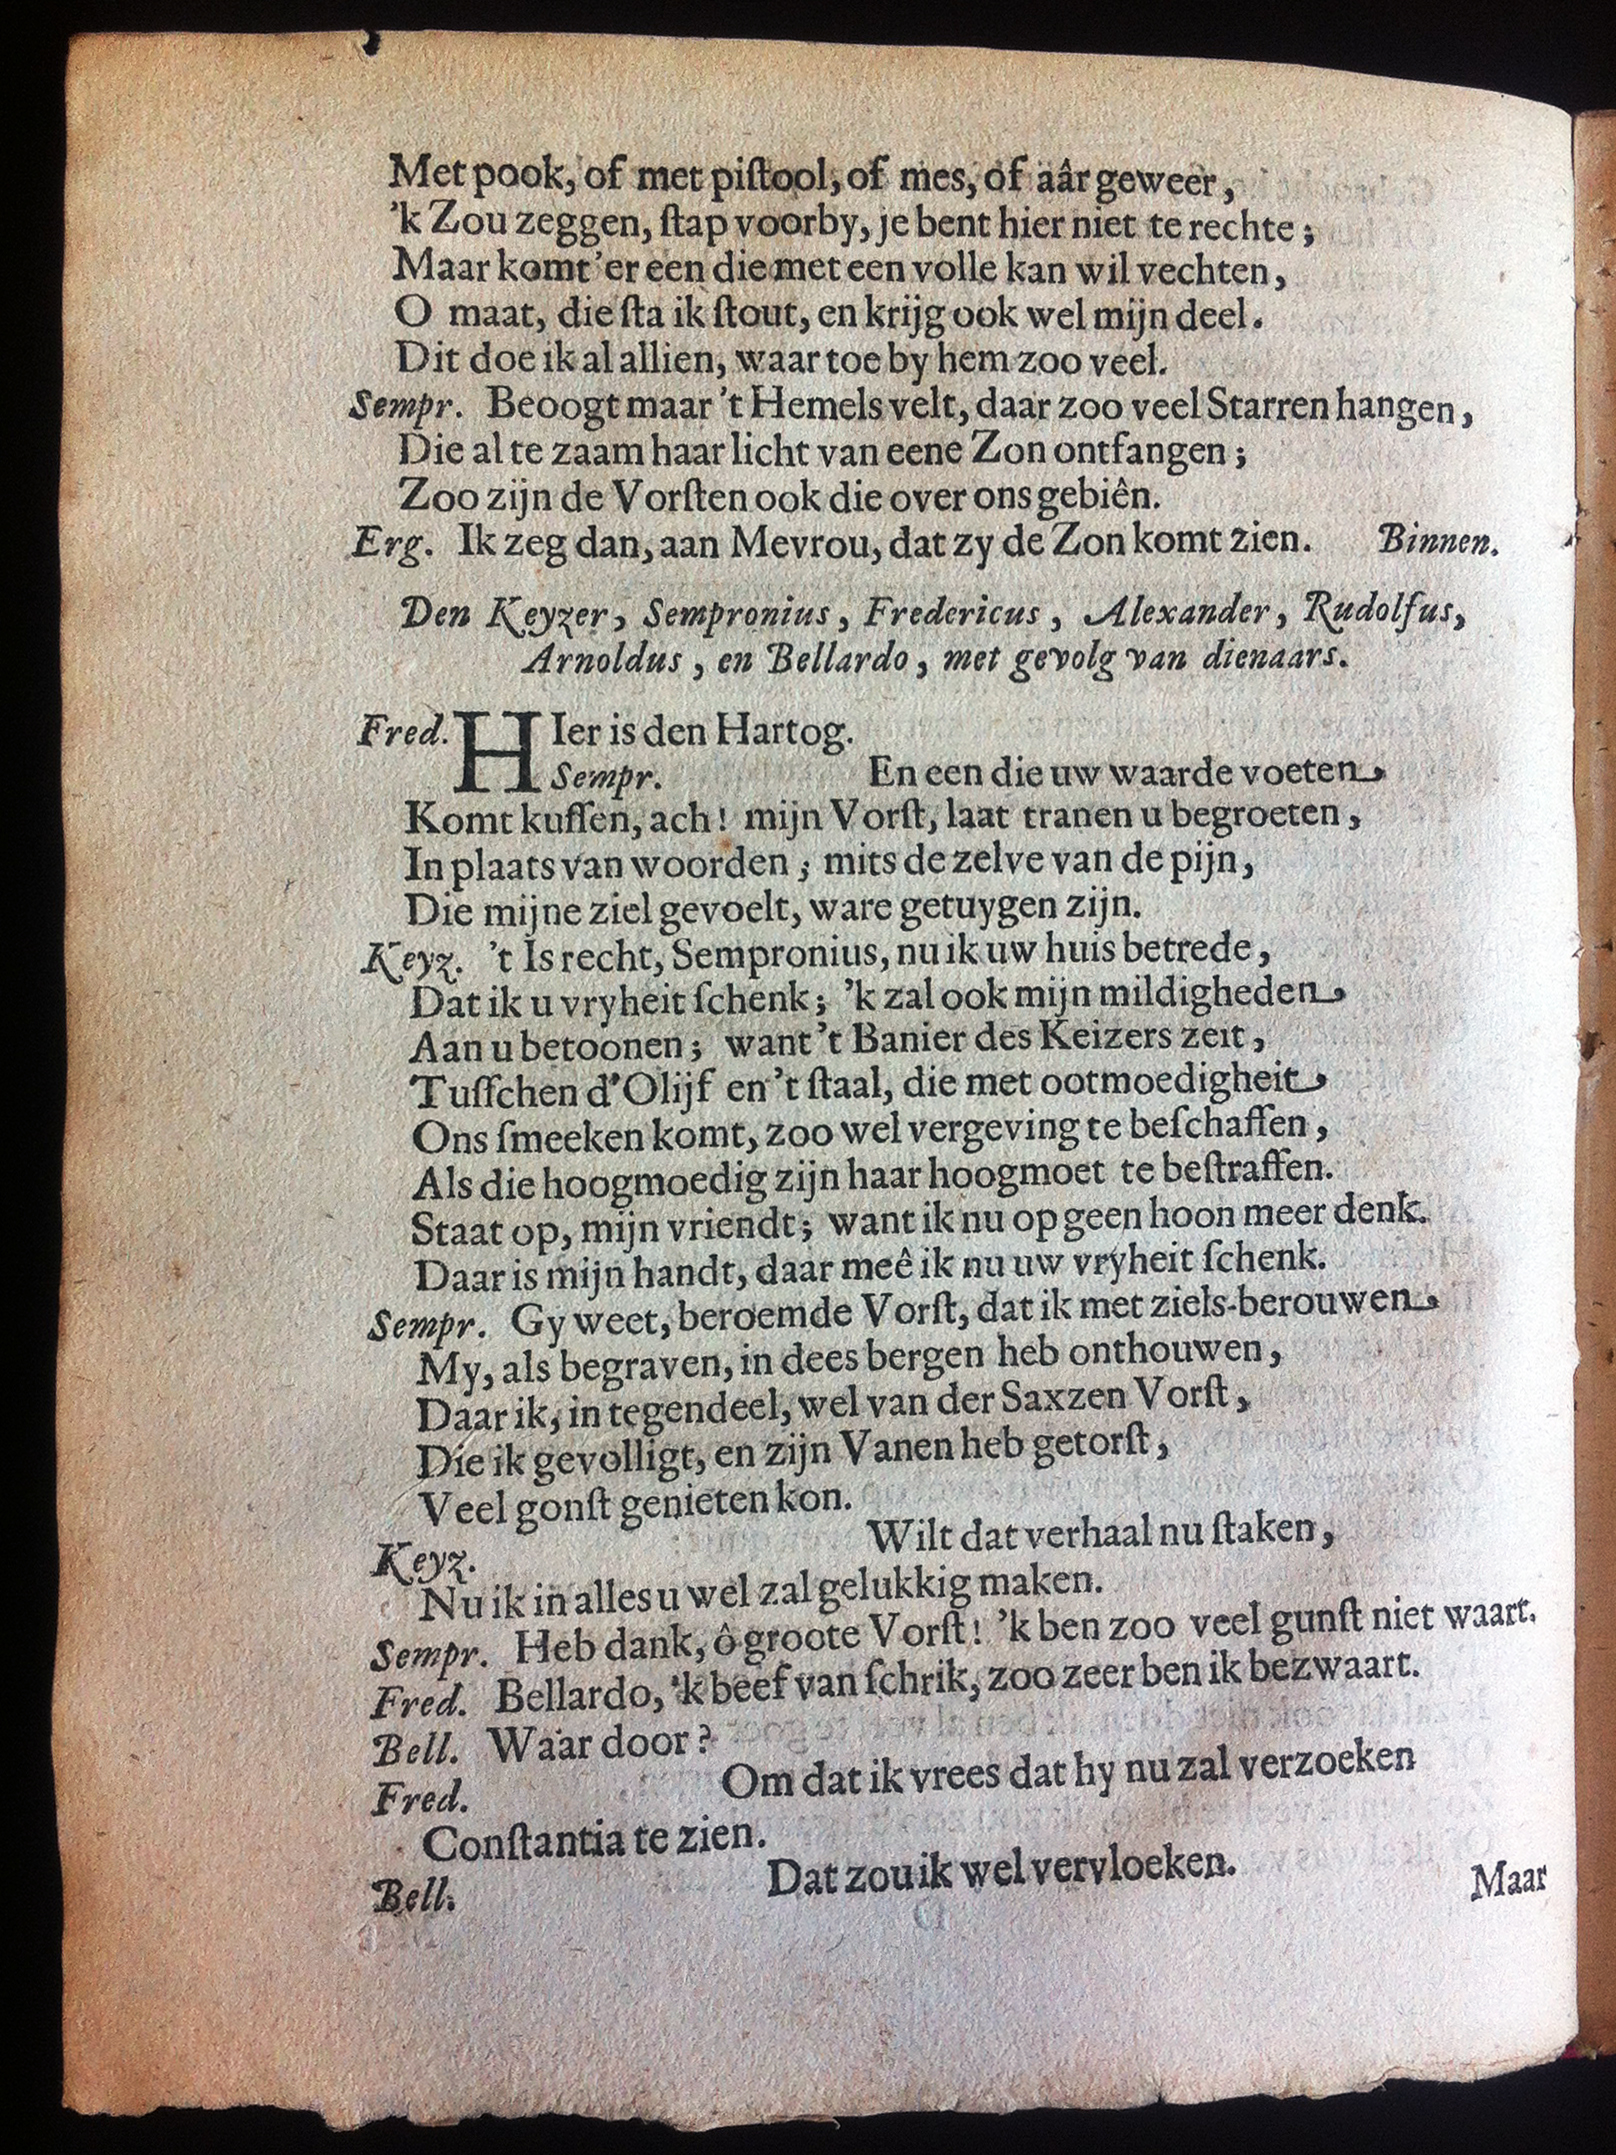 Met pook, of met piſtool, of mes, of aâr geweer,
'k Zou zeggen, ſtap voorby, je bent hier niet te rechte;
Maar komt 'er een die met een volle kan wil vechten,
O maat, die ſta ik ſtout, en krijg ook wel mijn deel.
Dit doe ik al allien, waar toe by hem zoo veel.
Sempr. Beoogt maar 't Hemels velt, daar zoo veel Starren hangen,
Die al te zaam haar licht van eene Zon ontfangen;
Zoo zijn de Vorſten ook die over ons gebiên.
Erg. Ik zeg dan, aan Mevrou, dat zy de Zon komt zien. Binnen.
Den Keyzer, Sempronius, Fredericus, Alexander, Rudolfus,
Arnoldus, en Bellardo, met gevolg van dienaars.
Fred. HIer is den Hartog.
Sempr. En een die uw waarde voeten
Komt kuſſen, ach! mijn Vorſt, laat tranen u begroeten,
In plaats van woorden; mits de zelve van de pijn,
Die mijne ziel gevoelt, ware getuygen zijn.
Keyz. 't Is recht, Sempronius, nu ik uw huis betrede,
Dat ik u vryheit ſchenk; 'k zal ook mijn mildigheden
Aan u betoonen; want 't Banier des Keizers zeit,
Tuſſchen d'Olijf en 't ſtaal, die met ootmoedigheit
Ons ſmeeken komt, zoo wel vergeving te beſchaffen,
Als die hoogmoedig zijn haar hoogmoet te beſtraffen.
Staat op, mijn vriendt; want ik nu op geen hoon meer denk.
Daar is mijn handt, daar meê ik nu uw vryheit ſchenk.
Sempr. Gy weet, beroemde Vorſt, dat ik met ziels-berouwen
My, als begraven, in dees bergen heb onthouwen,
Daar ik, in tegendeel, wel van der Saxzen Vorſt,
Die ik gevolligt, en zijn Vanen heb getorſt,
Veel gonſt genieten kon.
Keyz. Wilt dat verhaal nu ſtaken,
Nu ik in alles u wel zal gelukkig maken.
Sempr. Heb dank, ô groote Vorſt! 'k ben zoo veel gunſt niet waart.
Fred. Bellardo, 'k beef van ſchrik, zoo zeer ben ik bezwaart.
Bell. Waar door?
Fred. Om dat ik vrees dat hy nu zal verzoeken
Conſtantia te zien.
Bell. Dat zou ik wel vervloeken.
Maar